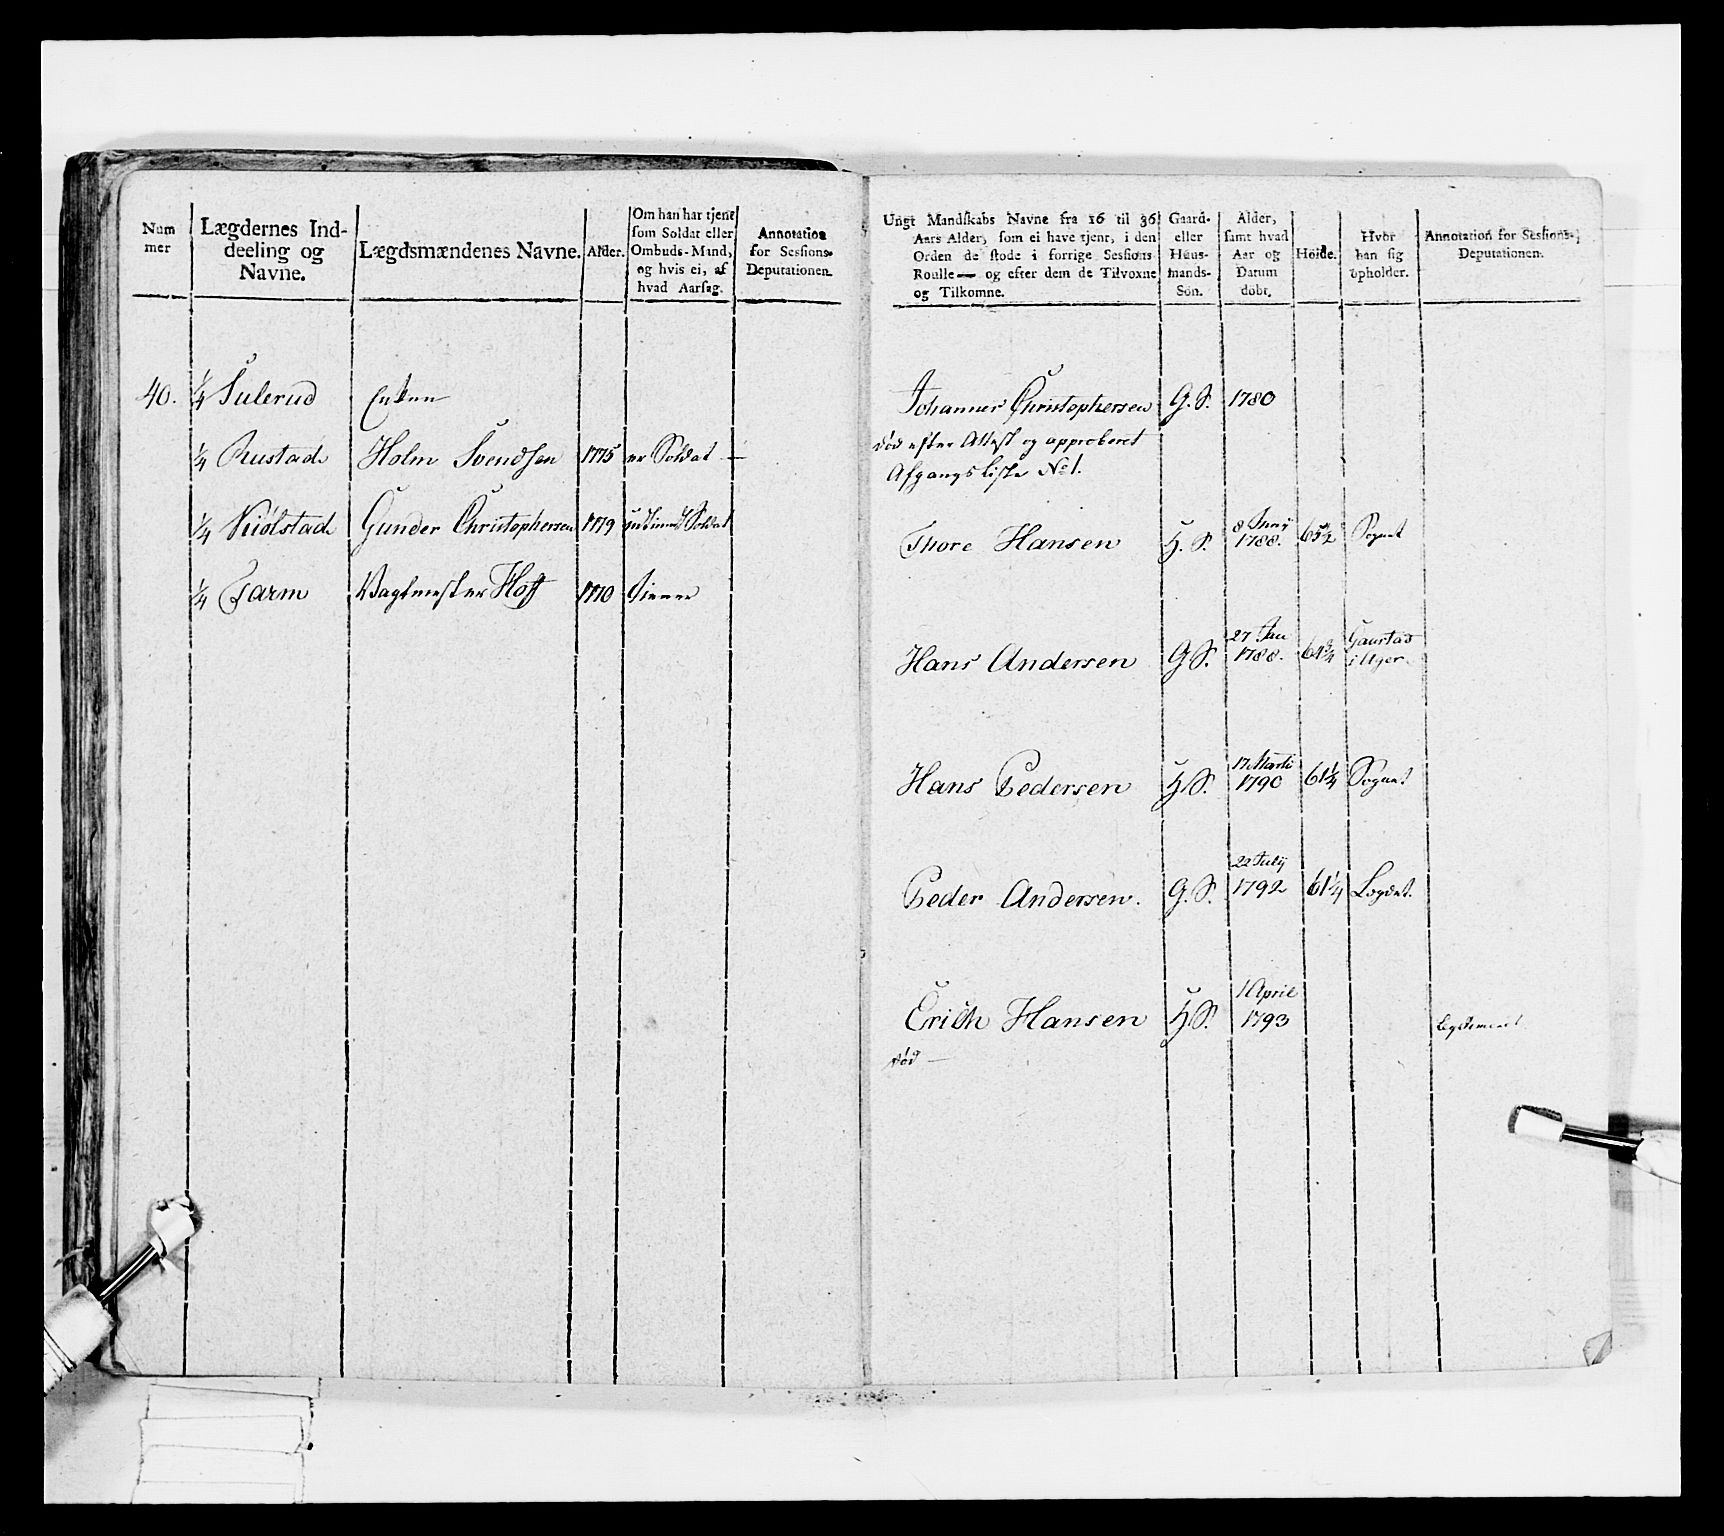 Num
mer
Lægdernes Ind-
deeling og
Navne.
Lægdsmændenes Navne.
Alder.
Om han har tjent
som Soldat eller
Ombuds-Mand,
og hvis ei, af
hvad Aarsag.
Annotation
for Sessions-
Deputationen.
40. 1/4 Sulerud Enken
1/4 Rustad Holm Svendsen 1775 er Soldat —
1/4 Kiølstad Gunder Christophersen 1779 Soldat
1/4 Tarm Vagtmester Hoff 1770 tiener
Ungt Mandskabs Navne fra 16 til 36
Aars Alder, som ei have tjent, i den
Orden de stode i forrige Sessions
Roulle — og efter dem de Tilvoxne
og Tilkomne.
Gaard-
eller
Huus-
mands-
Søn.
Alder,
samt hvad
Aar og
Datum
døbt.
Høide.
Hvor
han sig
opholder.
Annotation for Sessions-
Deputationen.
Johannes Christophersen G. S. 1780
død efter Attest og approberet
Afgangsliste No 1.
Thore Hansen H. S. 8 Juny 1788. 65 1/2 Sognet
Hans Andersen G S. 27 Jan 1788. 61 3/4 Gaustad i Ager
Hans Pedersen H S. 17 Marti 1790 61 1/4 Sognet
Peder Andersen. G. S. 22 July 1792 61 1/4 Logdet.
Erich Hansen H S. 1 April 1793
død —